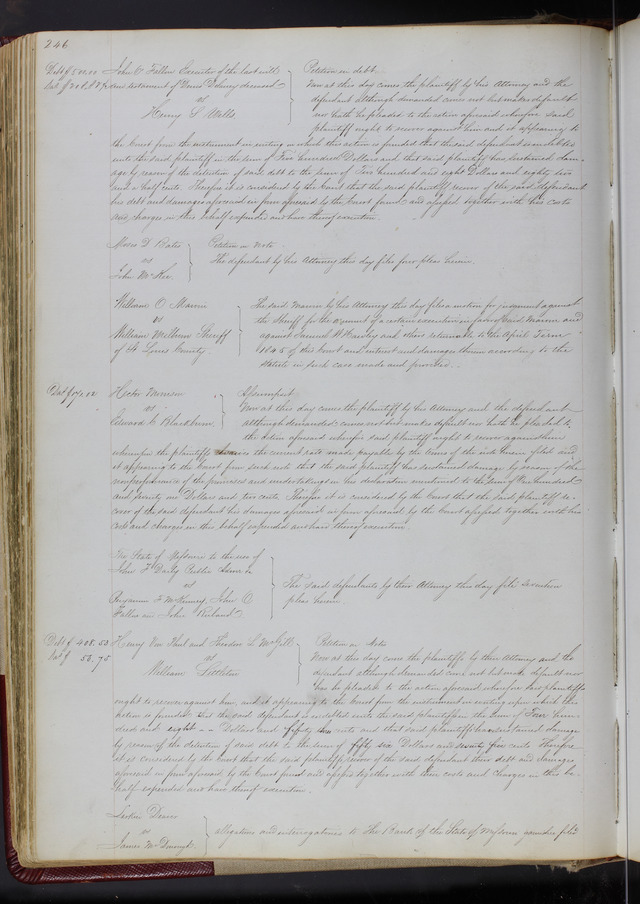 246
Debt $500.00 John C Fallon Executor of the last will } Petition in debt
Dat $208.82½ and testament of Denis Delaney deceased
vs
Henry T Mills
Now at this day comes the plaintiff by his Attorney and the
defendant although demanded comes not but makes default
nor hath he pleaded to the action aforesaid wherefore said
plaintiff ought to recover against him and it appearing to
the Court from the instrument in writing on which this action is founded that the said defendant is indebted
unto the said plaintiff in the sum of Five hundred Dollars and that said plaintiff has sustained dam-
age by reason of the detention of said debt to the sum of Two hundred and eight Dollars and eighty two
and a half cents Therefore it is considered by the Court that the said plaintiff recover of the said defendant
his debt and damages aforesaid in form aforesaid by the Court found and assessed together with his costs
and charges in this behalf expended and have thereof execution.
Moses D Bates } Petition on Note
vs
John McKee
The defendant by his Attorney this day files four pleas herein.
William O Marin
vs
William Milburn Sheriff
of St Louis County
The said Marin by his Attorney this day files a motion for judgment against
the Sheriff for the amount of a certain execution in favor of said Marin and
against Samuel H Hawley and others returnable to the April Term
1845 of this Court and interest and damages thereon according to the
Statute in such case made and provided.
Dat $172.12 Hector Morrison } Assumpsit
vs
Edward C Blackburn
Now at this day comes the plaintiff by his Attorney and the defendant
although demanded comes not but makes default nor hath he pleaded to
the action aforesaid wherefore said plaintiff ought to recover against him
wherefore the plaintiff the current rate made payable by the terms of the herein filed and
it appearing to the Court from such note that the said plaintiff has sustained damage by reason of the
nonperformance of the promises and undertakings in his declaration mentioned to the sum of One hundred
and seventy Dollars and cents Therefore it is considered by the Court that the said plaintiff re-
cover of the said defendant his damages aforesaid in form aforesaid by the Court assessed together with his
costs and charges in this behalf expended and have thereof execution.
The State of Missouri to the use of
John F Darby Public Admr
vs
Benjamin F McKenney, John O
Fallon and John Ruland
The said defendants by their Attorney this day file seventeen
pleas herein.
Debt $408.53 Henry Von Phul and Theodore L McGill } Petition on Note
Dat $ 56.75
vs
William Littleton
Now at this day comes the plaintiffs by their Attorney and the
defendant although demanded comes not but makes default nor
has he pleaded to the action aforesaid wherefore said plaintiffs
ought to recover against him, and it appearing to the Court from the instrument in writing upon which this
action is founded that the said defendant is indebted unto the said plaintiffs in the sum of Four hun-
dred and eight -- Dollars and fifty three cents and that said plaintiffs have sustained damage
by reason of the detention of said debt to the sum of fifty six Dollars and seventy five cents Therefore
it is considered by the Court that the said plaintiffs recover of the said defendant their debt and damages
aforesaid in form aforesaid by the Court found and assessed together with their costs and charges in this be-
half expended and have thereof execution.
Larkin Deaver
vs
James McDonough
allegations and interrogatories to the Bank of the State of Missouri garnishee filed